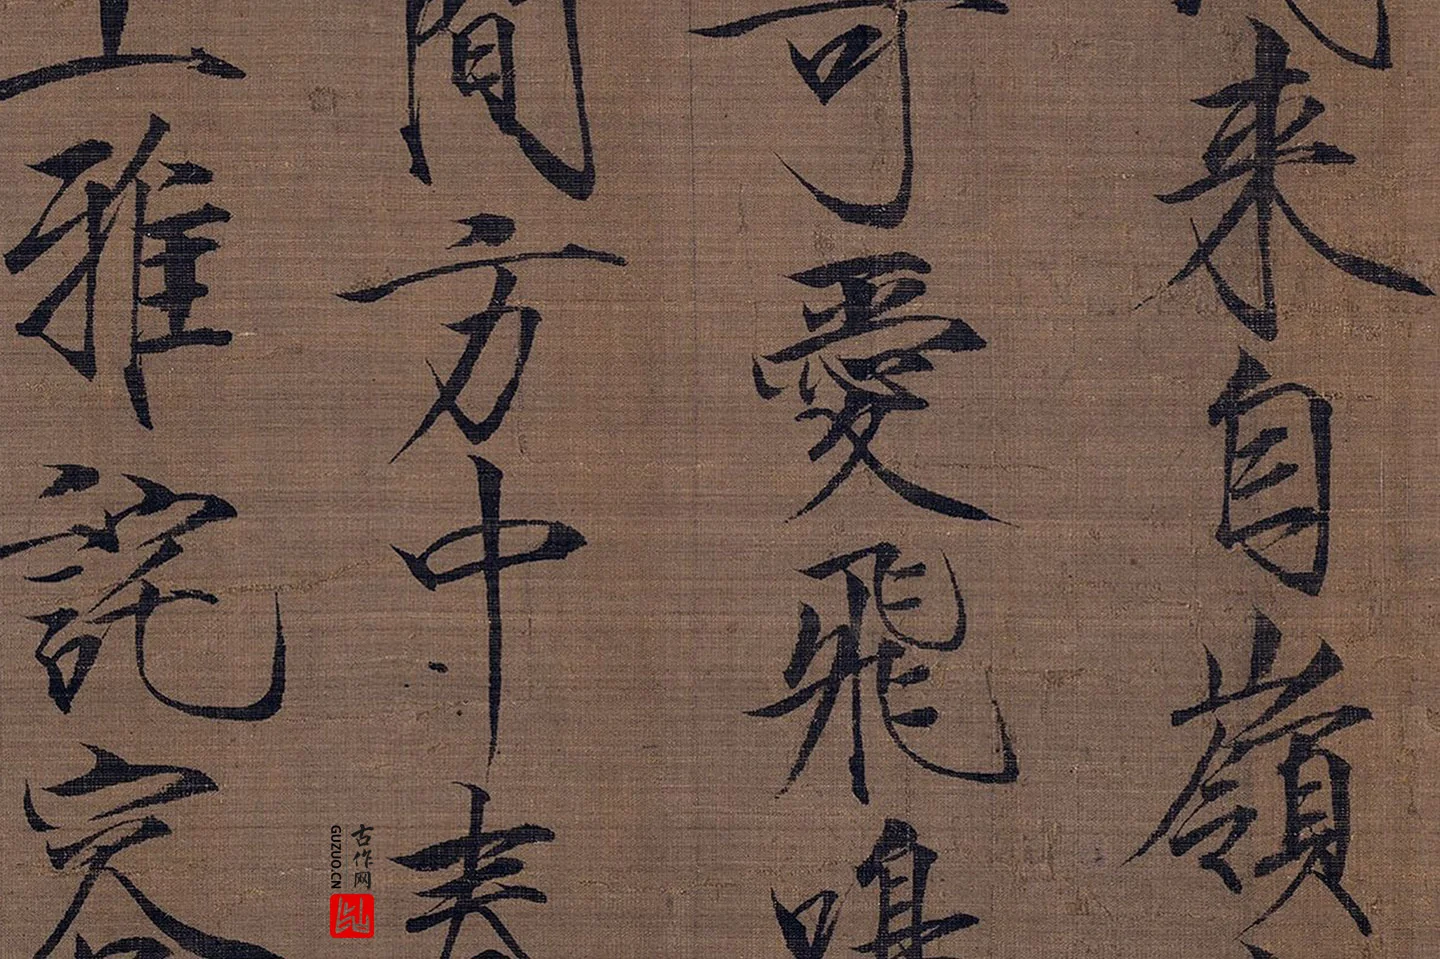 來自嶺
可愛飛鳴
間方中春
上雅詫容
古作网
GUZUO.CN